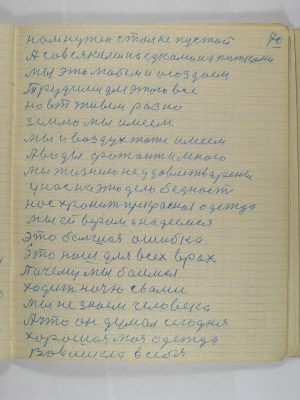 нам нужен стол не пустой
А со всякими на едками и питками
мы это любем и создаем
Трудимся для этого все
но вт живем разно
землю мы имеем
мы и воздух тоже имеем
А воды много
мы жизнию не удовлетварены
у нас на это дело бедност
нас хранит прекрасная одежда
мы ей верим и надеемся
это большая ошибка
Это наш для всех врах
Почему мы боимся
ходит ночю с вами
мы не знаем человека
А что он думал сегодня
хорошая моя одежда
в себя